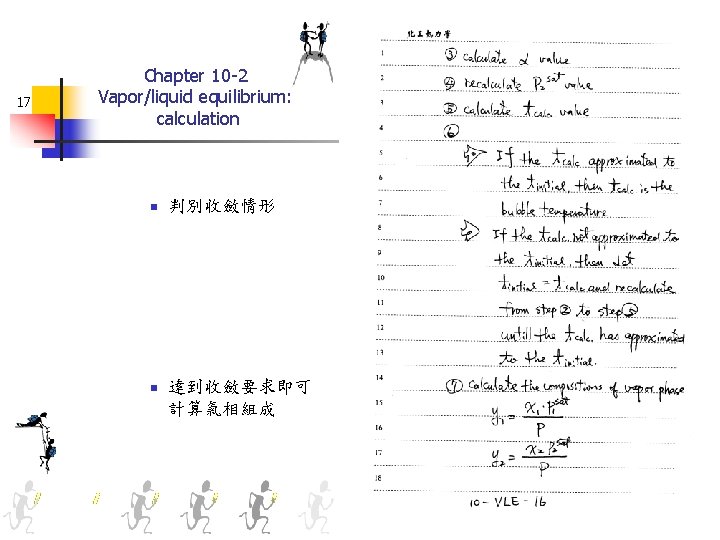 17
Chapter 10-2
Vapor/liquid equilibrium:
calculation
判別收斂情形
達到收斂要求即可
計算氣相組成
化工熱力學
1 ③ calculate α value
2 ④ recalculate P₂sat
3 ⑤ calculate tcalc value
4 ⑥
5 If the tcalc approximated to
6 the tinitial, then tcalc is the
7 bubble temperature
8 If the tcalc not approximated to
9 the tinitial, then let
10 tinitial = tcalc and recalculate
11 from step ② to step ⑤
12 until the tcalc has approximated
13 to the tinitial.
14 ⑦ calculate the compositions of vapor phase
15 y₁ = x₁·P₁sat / P
16
17 y₂ = x₂·P₂sat / P
18
10-VLE-16